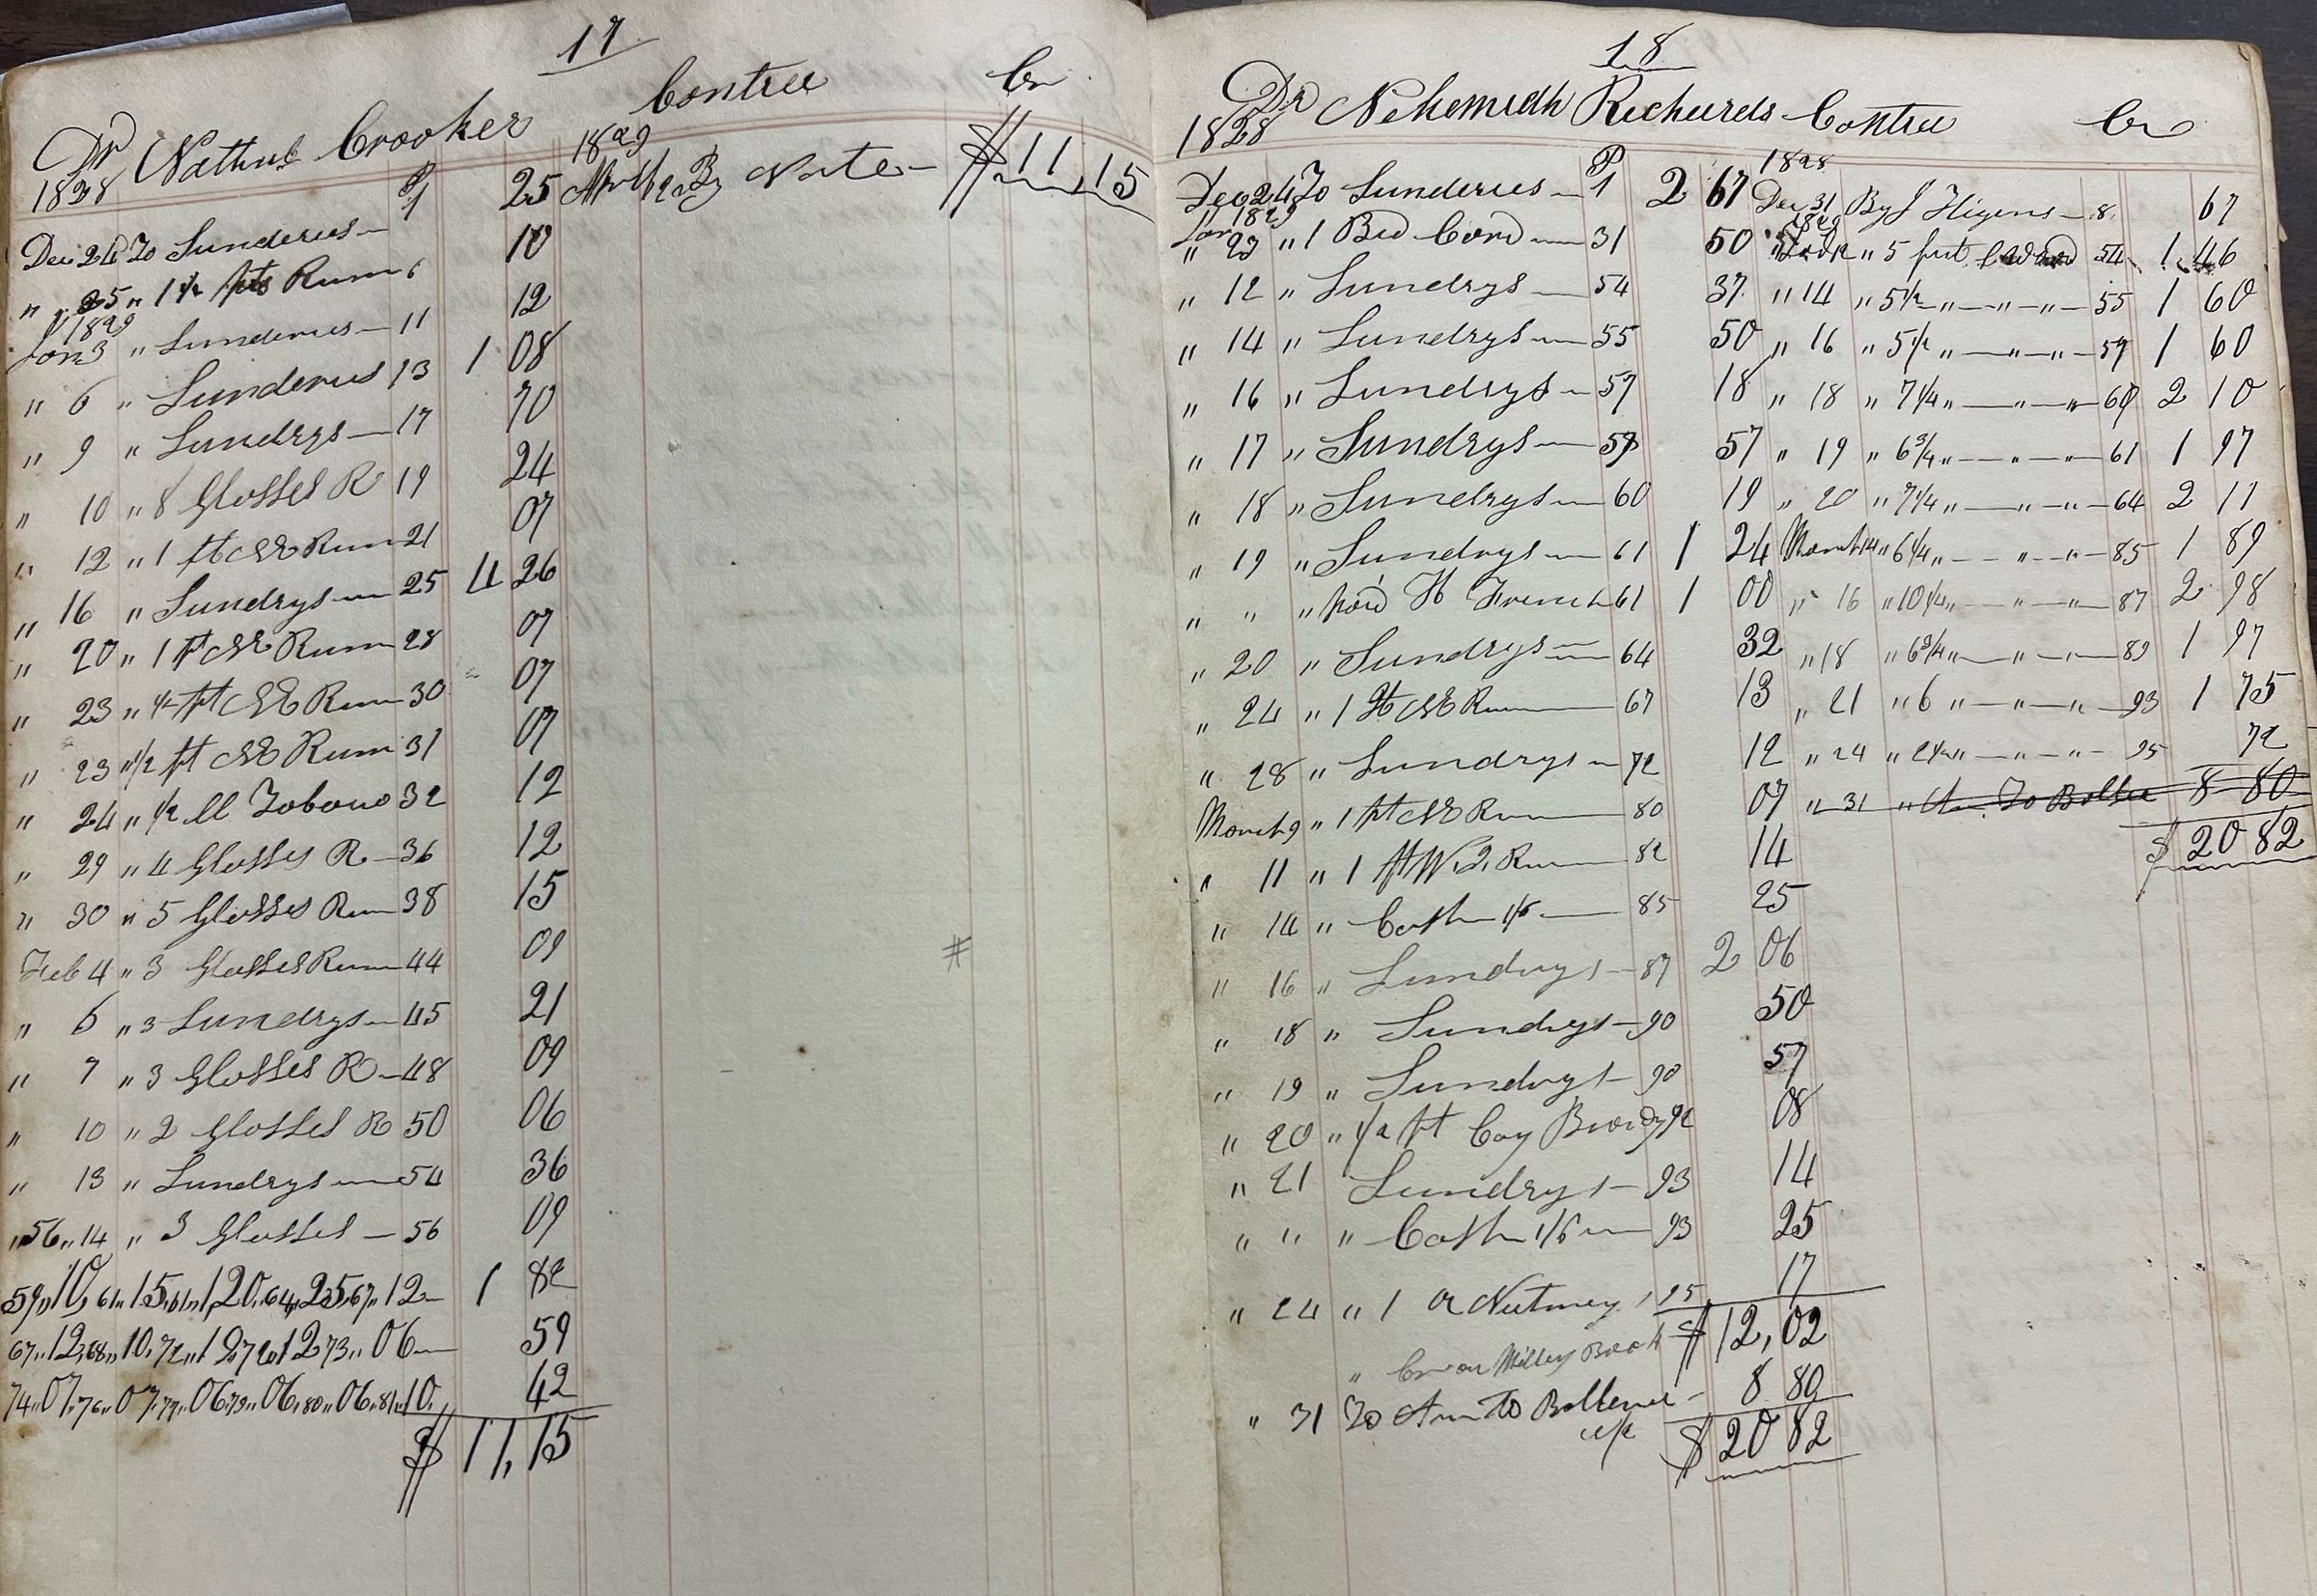 17
Dr Nathnl Crooker Contree Cr
1828 P 1829
Dec 24 To Sunderies — 1 25 By Note — $11,15
" 25 " 1 1/2 pts Rum 6 10
1829
Jan 3 " Sunderies — 11 12
" 6 " Sunderies 13 1 08
" 9 " Sundrys — 17 70
" 10 " 8 Glosses R 19 24
" 12 " 1 pt NE Rum 21 07
" 16 " Sundrys — 25 4 26
" 20 " 1 pt NE Rum 28 07
" 23 " 1/2 pt NE Rum 30 07
" 23 " 1/2 pt NE Rum 31 07
" 24 " 1/2 ll Tobocco 32 12
" 29 " 4 Glosses R — 36 12
" 30 " 5 Glosses Rum 38 15
Feb 4 " 3 Glosses Rum 44 09
" 6 " 3 Sundrys — 45 21
" 7 " 3 Glosses R — 48 09
" 10 " 2 Glosses R 50 06
" 13 " Sundrys — 54 36
" 56 " 14 " 3 Glosses — 56 09
59,,10, 61,,15, 61,,1,20, 64,,25, 67,,12 — 1 82
67,,12, 68,,10, 72,,12, 72,,12, 73,,06 — 59
74,,07, 76,,07, 77,,06, 79,,06, 80,,06, 81,,10. 42
$ 11,15
#
18
Dr Nehemiah Richards Contree Cr
1828 P 1828
Dec 24 To Sunderies — 1 2 67 Dec 31 By J Higens — 8 67
Jan 1829 1829
" 23 " 1 Bed Cord — 31 50 " 5 feet 54 1 46
" 12 " Sundrys — 54 37 " 14 " 5 1/2 " — " — " — 55 1 60
" 14 " Sundrys — 55 50 " 16 " 5 1/2 " — " — " — 57 1 60
" 16 " Sundrys — 57 18 " 18 " 7 1/4 " — " — " 60 2 10
" 17 " Sundrys — 59 57 " 19 " 6 3/4 " — " — " — 61 1 97
" 18 " Sundrys — 60 19 " 20 " 7 1/4 " — " — " — 64 2 11
" 19 " Sundrys — 61 1 24 March 14 " 6 1/4 " — " — " — 85 1 89
" " " paid H French 61 1 00 " 16 " 10 1/4 " — " — " — 87 2 98
" 20 " Sundrys — 64 32 " 18 " 6 3/4 " — " — " — 89 1 97
" 24 " 1 Qt NE Rum — 67 13 " 21 " 6 " — " — " — 93 1 75
" 28 " Sundrys — 72 12 " 24 " 2 1/2 " — " — " — 95 72
March 9 " 1 pt NE Rum — 80 07 " 31 " Am To Bollce 8 80
" 11 " 1 pt W. I. Rum — 82 14 $ 20 82
" 14 " Cash 1/6 — 85 25
" 16 " Sundrys — 87 2 06
" 18 " Sundrys — 90 50
" 19 " Sundrys — 90 57
" 20 " 1/2 pt Cog Brondy 92 08
" 21 Sundrys — 93 14
" " " Cash 1/6 — 93 25
" 24 " 1 Nutmeg 95 17
" Cr on Book $ 12,02
" 31 To Am To Bollence — 8 80
$ 20 82